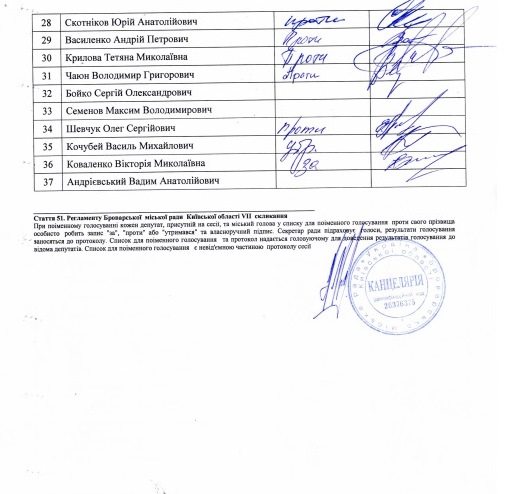 28 Скотніков Юрій Анатолійович проти
29 Василенко Андрій Петрович Проти
30 Крилова Тетяна Миколаївна Проти
31 Чаюн Володимир Григорович Проти
32 Бойко Сергій Олександрович
33 Семенов Максим Володимирович
34 Шевчук Олег Сергійович проти
35 Кочубей Василь Михайлович утр.
36 Коваленко Вікторія Миколаївна за
37 Андрієвський Вадим Анатолійович
Стаття 51. Регламенту Броварської міської ради Київської області VII скликання
При поіменному голосуванні кожен депутат, присутній на сесії, та міський голова у списку для поіменного голосування проти свого прізвища
особисто робить запис "за", "проти" або "утримався" та власноручний підпис. Секретар ради підраховує голоси, результати голосування
заносяться до протоколу. Список для поіменного голосування та протокол надається головуючому для доведення результатів голосування до
відома депутатів. Список для поіменного голосування є невід'ємною частиною протоколу сесії
КАНЦЕЛЯРІЯ
26376375